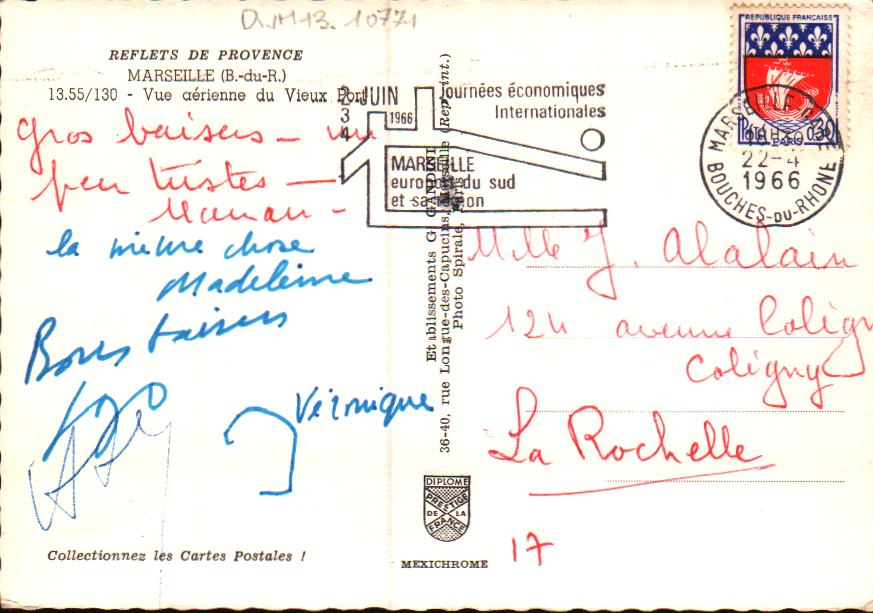 D.M13.10771
REFLETS DE PROVENCE
MARSEILLE (B.-du-R.)
13.55/130 - Vue aérienne du Vieux Port
Gros baisers - un
peu tristes -
Maman -
la même chose
Madeleine
Bons baisers
Véronique
Collectionnez les Cartes Postales !
2 JUIN
3
4
1966
Journées économiques
Internationales
MARSEILLE
europort du sud
et sa région
Etablissements G. GANDINI
36-40, rue Longue-des-Capucins, Marseille (Rep. int.)
Photo Spirale, Paris
DIPLOME
PRESTIGE
DE LA
FRANCE
MEXICHROME
REPUBLIQUE FRANÇAISE
POSTES
0,30
PARIS
MARSEILLE GARE
18H30
22-4
1966
BOUCHES-DU-RHONE
Mlle J. Alalain
124 avenue Coligny
Coligny
La Rochelle
17